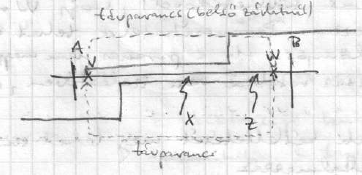 távparancs (belső zárlatnál)
A
B
X
Z
távparancs